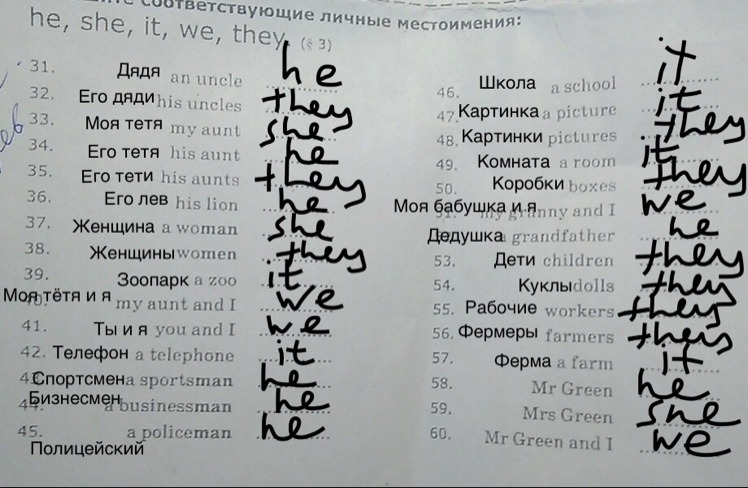 соответствующие личные местоимения:
he, she, it, we, they. (§ 3)
31. Дядя an uncle he
32. Его дяди his uncles they
33. Моя тетя my aunt she
34. Его тетя his aunt he
35. Его тети his aunts they
36. Его лев his lion he
37. Женщина a woman she
38. Женщины women they
39. Зоопарк a zoo it
40. Моя тётя и я my aunt and I we
41. Ты и я you and I we
42. Телефон a telephone it
43. Спортсмен a sportsman he
44. Бизнесмен a businessman he
45. a policeman he
Полицейский
46. Школа a school it
47. Картинка a picture it
48. Картинки pictures they
49. Комната a room it
50. Коробки boxes they
51. Моя бабушка и я my granny and I we
Дедушка a grandfather he
53. Дети children they
54. Куклы dolls they
55. Рабочие workers they
56. Фермеры farmers they
57. Ферма a farm it
58. Mr Green he
59. Mrs Green she
60. Mr Green and I we